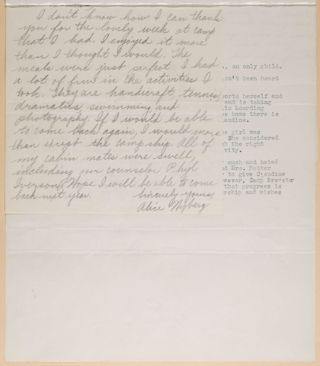 I don't know how I can thank
you for the lovely week at camp
that I had I enjoyed it more
than I thought I would. The
meals were just perfect. I had
a lot of fun in the activities I
took. They are handicraft, tennis,
dramatics, swimming and
photography. If I would be able
to come back again, I would more
than accept the campship. All of
my cabin mates were swell,
including our counselor Phyl
Iverson. Hope I will be able to come
back next year.
Sincerely yours,
Alice
an only child.
n't been heard
orts herself and
and is taking
is boarding
w home there is
girl was
She considered
the right
vity.
such and hated
Mrs. Potter
to give
Camp Brewster
that progress is
ership and wishes